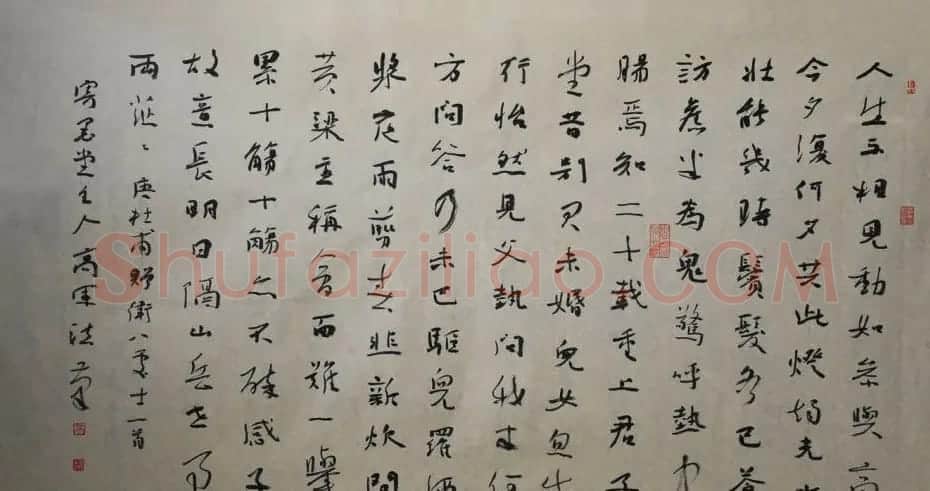 人生不相見動如參與商
今夕復何夕共此燈燭光少
壯能幾時鬢髮各已蒼
訪舊半為鬼驚呼熱中
腸焉知二十載重上君子
堂昔別君未婚兒女忽成
行怡然見父執問我來何
方問答乃未已驅兒羅酒
漿夜雨剪春韭新炊間
黃粱主稱會面難一舉
累十觴十觴亦不醉感子
故意長明日隔山岳世事
兩茫〻 唐杜甫贈衛八處士一首
堂主人高軍法
Shufaziliao.COM